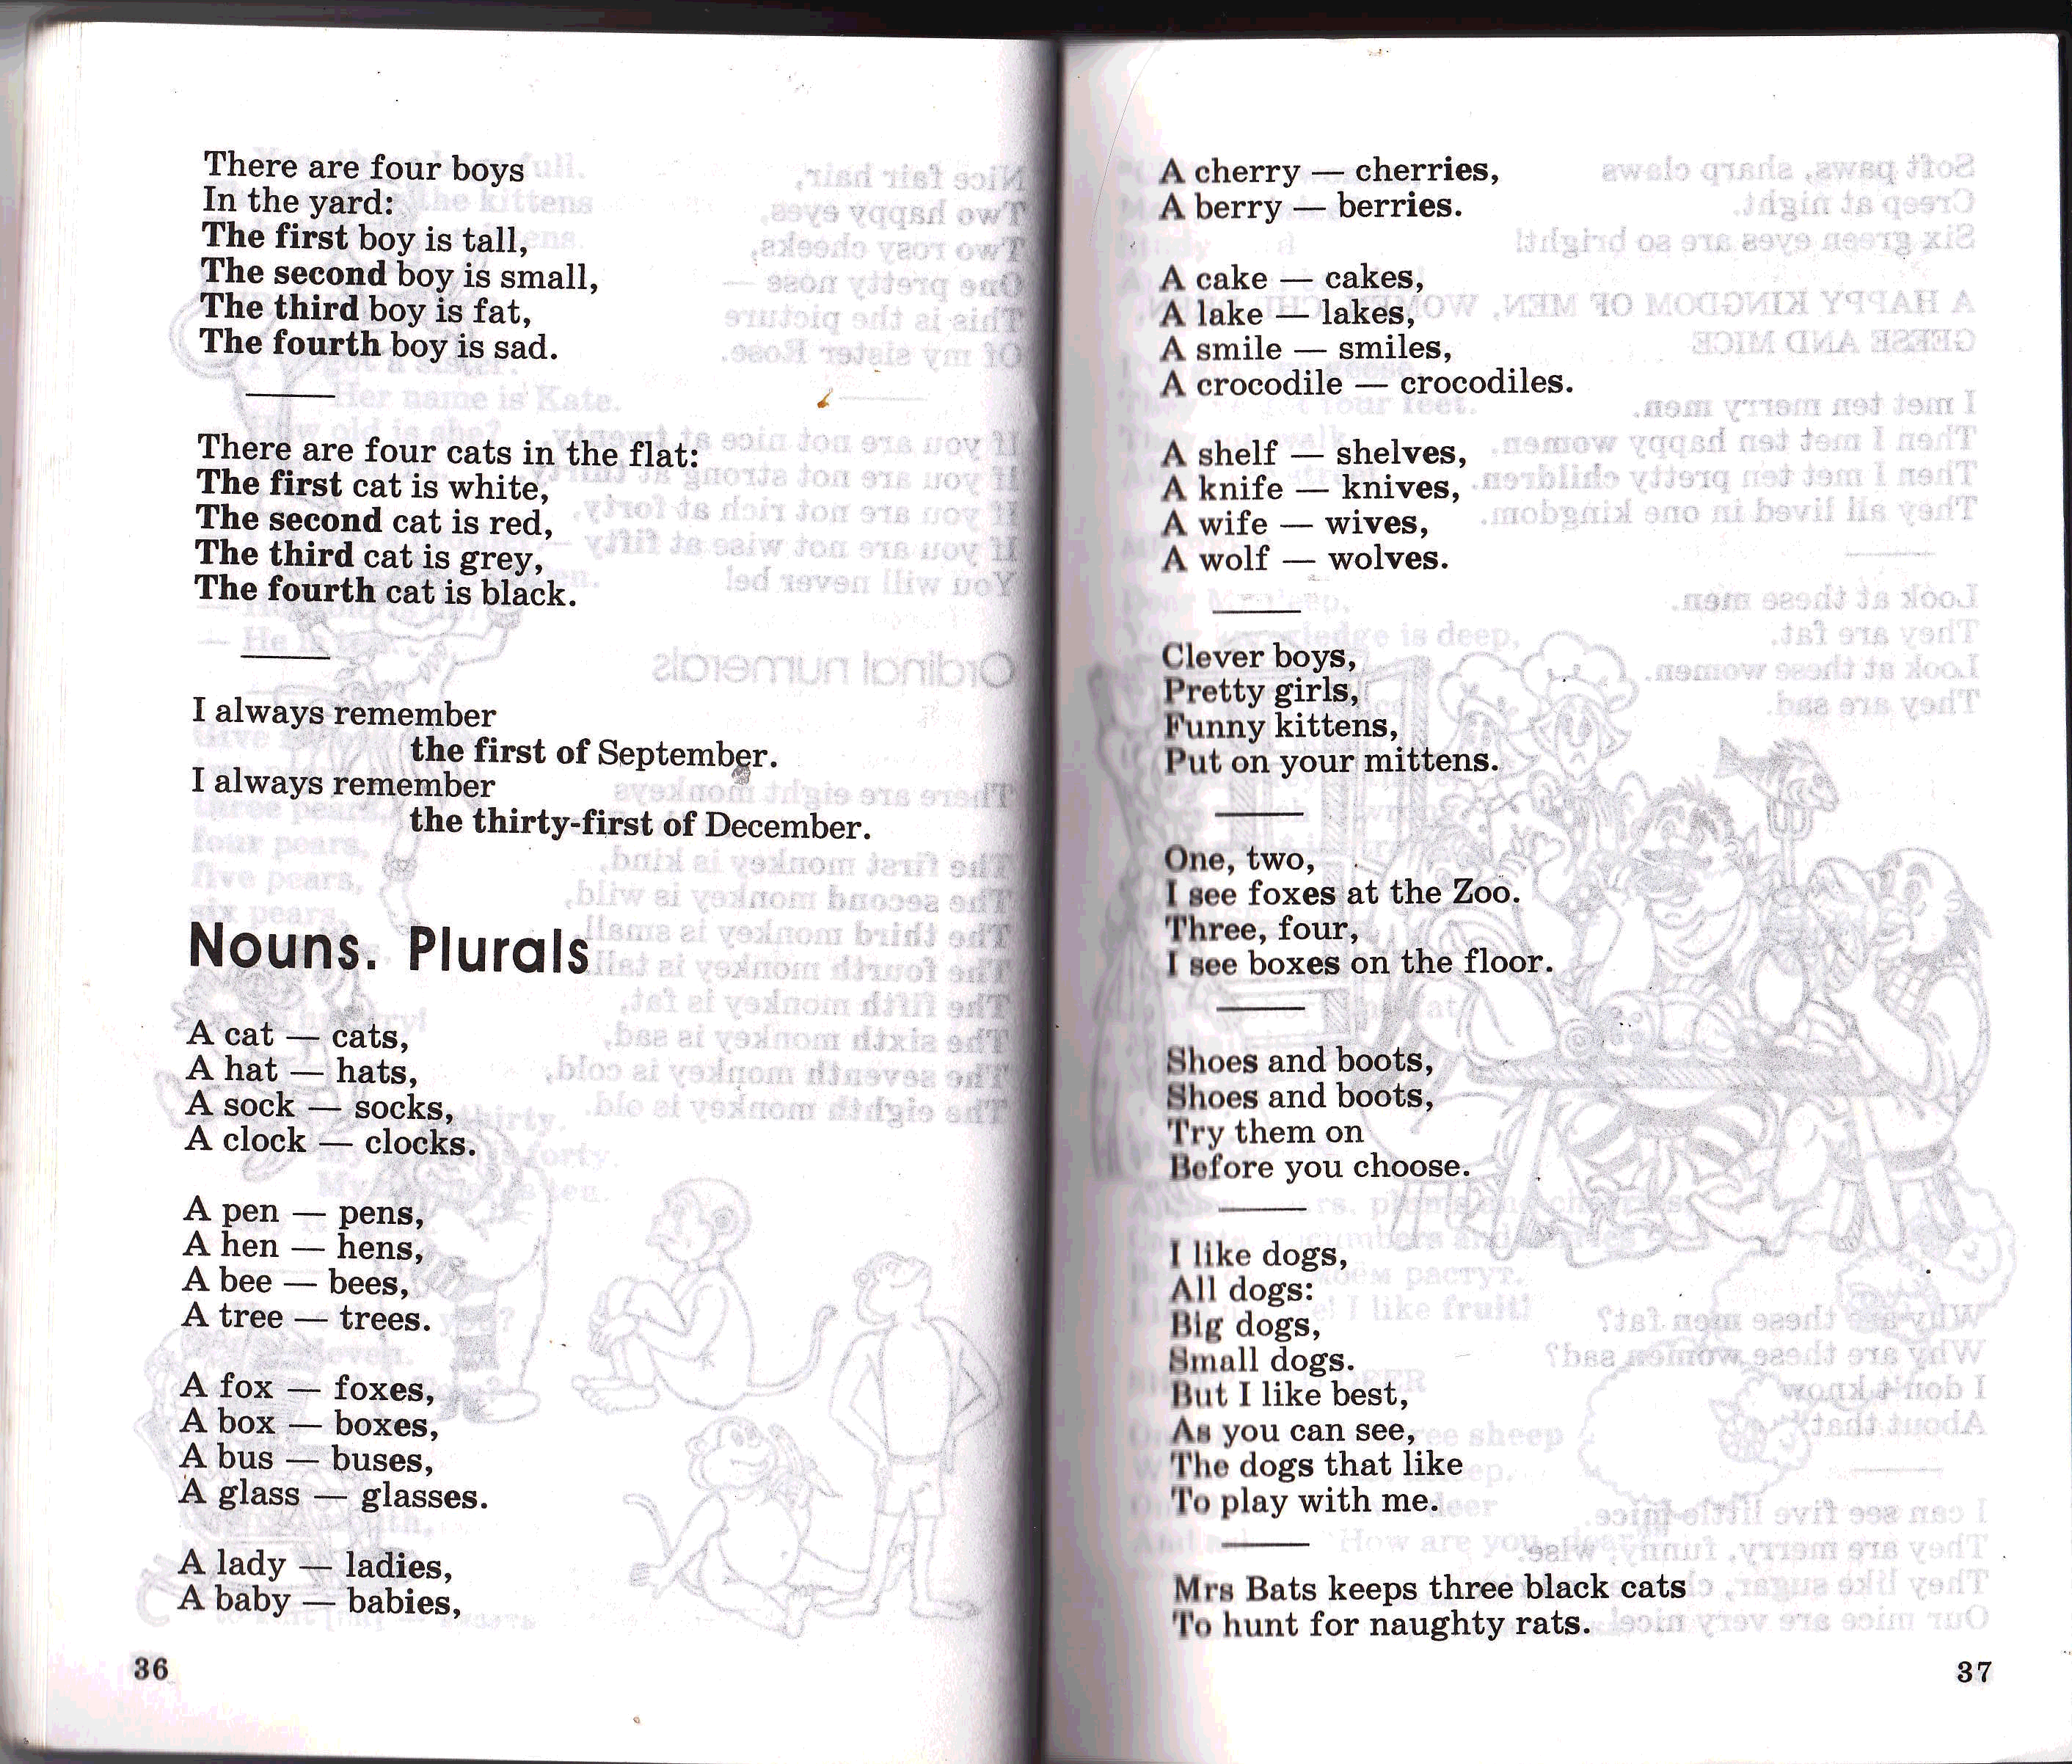 There are four boys
In the yard:
The first boy is tall,
The second boy is small,
The third boy is fat,
The fourth boy is sad.
There are four cats in the flat:
The first cat is white,
The second cat is red,
The third cat is grey,
The fourth cat is black.
I always remember
the first of September.
I always remember
the thirty-first of December.
Nouns. Plurals
A cat — cats,
A hat — hats,
A sock — socks,
A clock — clocks.
A pen — pens,
A hen — hens,
A bee — bees,
A tree — trees.
A fox — foxes,
A box — boxes,
A bus — buses,
A glass — glasses.
A lady — ladies,
A baby — babies,
36
A cherry — cherries,
A berry — berries.
A cake — cakes,
A lake — lakes,
A smile — smiles,
A crocodile — crocodiles.
A shelf — shelves,
A knife — knives,
A wife — wives,
A wolf — wolves.
Clever boys,
Pretty girls,
Funny kittens,
Put on your mittens.
One, two,
I see foxes at the Zoo.
Three, four,
I see boxes on the floor.
Shoes and boots,
Shoes and boots,
Try them on
Before you choose.
I like dogs,
All dogs:
Big dogs,
Small dogs.
But I like best,
As you can see,
The dogs that like
To play with me.
Mrs Bats keeps three black cats
To hunt for naughty rats.
37